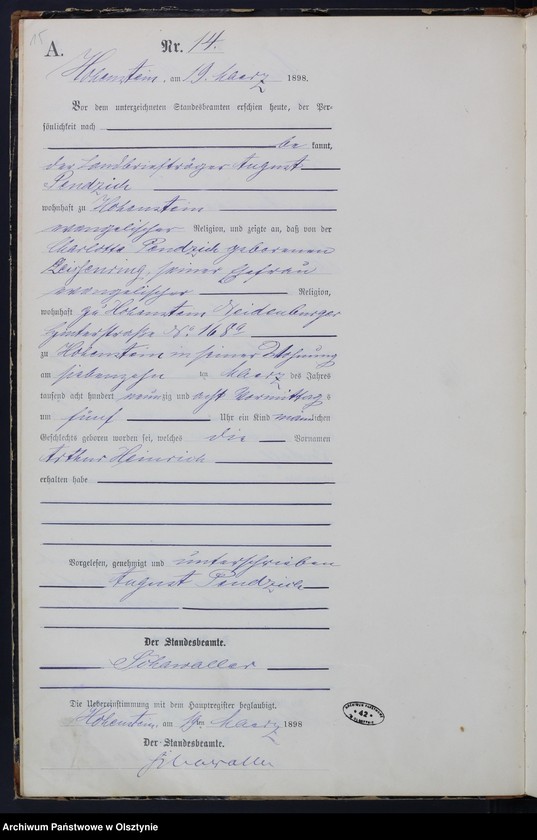 15
A.
Nr. 14.
Hohenstein, am 19. Maerz 1898.
Vor dem unterzeichneten Standesbeamten erschien heute, der Per-
sönlichkeit nach
be kannt,
der Landbriefträger August
Pendzich
wohnhaft zu Hohenstein
evangelischer Religion, und zeigte an, daß von der
Charlotte Pendzich geborenen
seiner Ehefrau
evangelischer Religion,
wohnhaft zu Hohenstein Neidenburger
Hinterstraße No 168a
zu Hohenstein in seiner Wohnung
am siebenzehn ten Maerz des Jahres
tausend acht hundert neunzig und acht Vormittags
um fünf Uhr ein Kind männlichen
Geschlechts geboren worden sei, welches die Vornamen
Arthur Heinrich
erhalten habe
Vorgelesen, genehmigt und unterschrieben
August Pendzich
Der Standesbeamte.
Die Uebereinstimmung mit dem Hauptregister beglaubigt.
Hohenstein, am 19ten Maerz 1898
Der Standesbeamte.
42
Archiwum Państwowe w Olsztynie